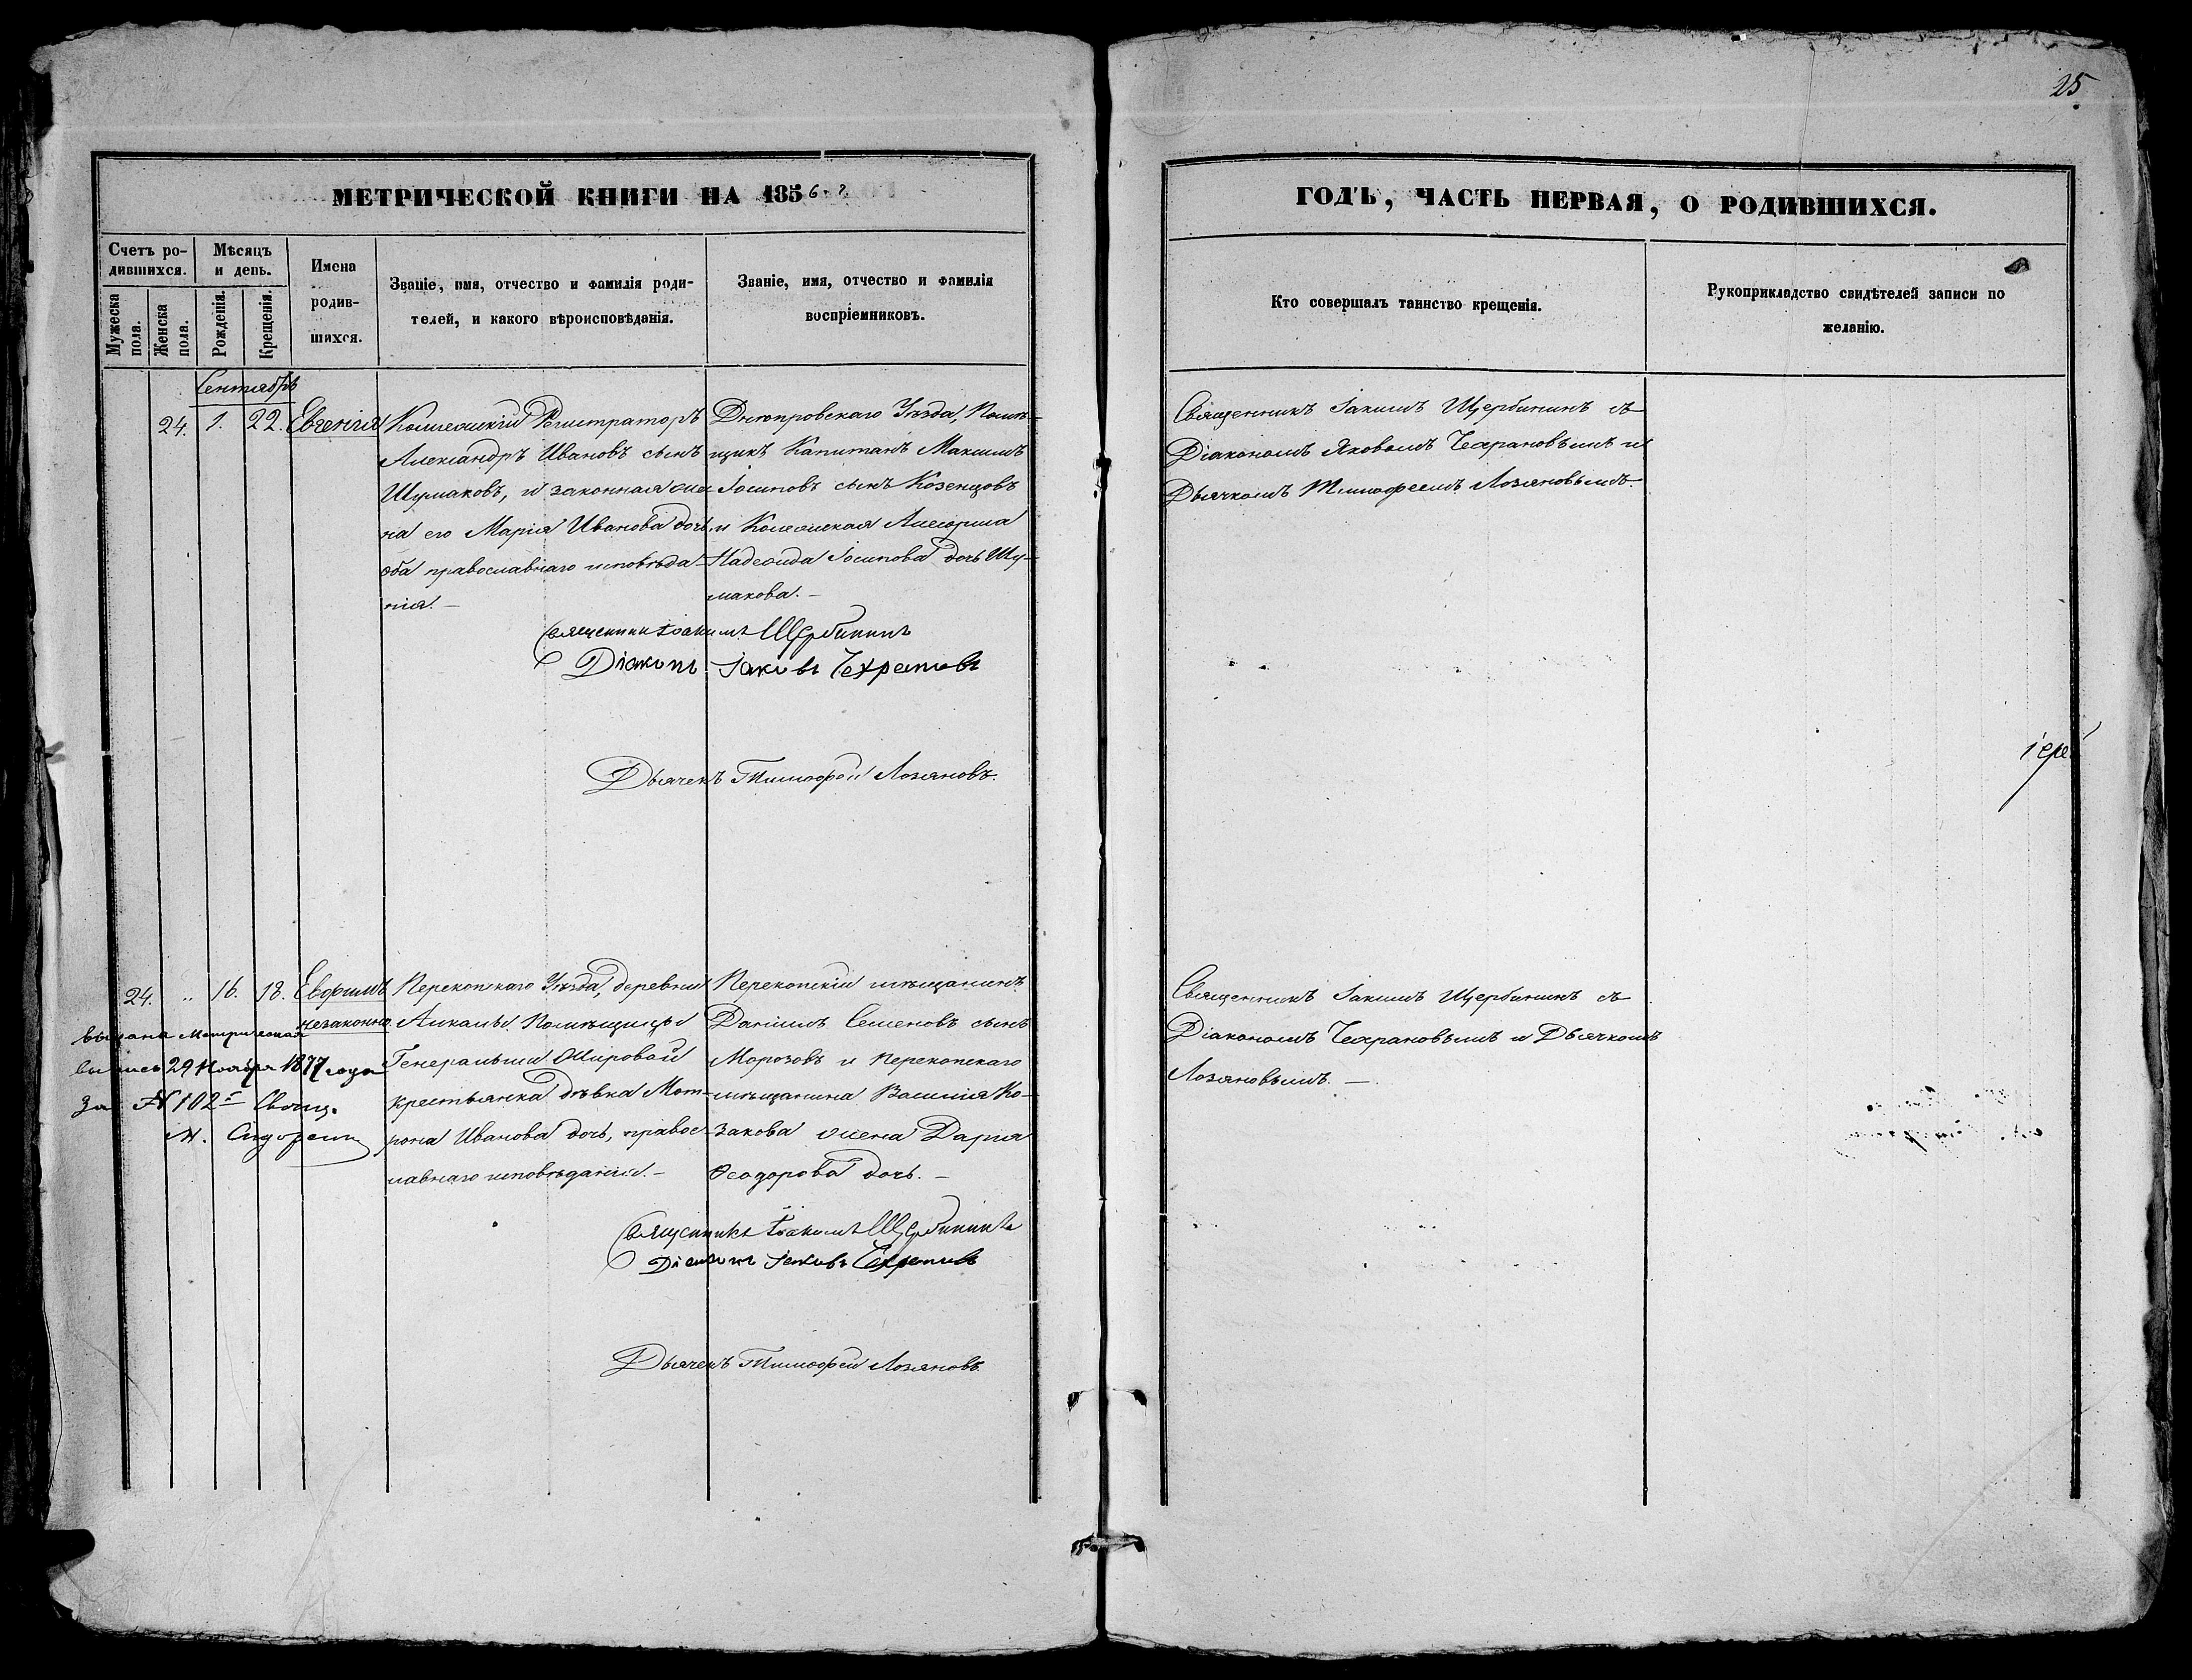 25
МЕТРИЧЕСКОЙ КНИГИ НА 1856.
ГОДЪ, ЧАСТЬ ПЕРВАЯ, О РОДИВШИХСЯ.
Счетъ ро-
дившихся.
Мѣсяцъ
и день.
Мужеска пола.
Женска пола.
Рожденія.
Крещенія.
Имена
родив-
шихся.
Званіе, имя, отчество и фамилія роди-
телей, и какого вѣроисповѣданія.
Званіе, имя, отчество и фамилія
воспріемниковъ.
Кто совершалъ таинство крещенія.
Рукоприкладство свидѣтелей записи по
желанію.
Сентябрь
24. 1. 22. Евгенія
Коллежскій Регистраторъ
Александръ Ивановъ сынъ
Шумаковъ, и законная же-
на его Марія Иванова дочь
оба православнаго исповѣда-
нія. —
Днѣпровскаго Уѣзда, Помѣ-
щикъ Капитанъ Максимъ
Іосиповъ сынъ Козенцовъ
и Колежская Ассорша
Надежда Іосипова дочь Шу-
макова. —
Священникъ Іакимъ Щербининъ съ
Діакономъ Яковомъ Чехрановымъ и
Дьячкомъ Тимофеемъ Лозяновымъ.
Священникъ Іоакимъ Щербининъ
Діаконъ Іаковъ Чехрановъ
Дьячекъ Тимофей Лозяновъ.
іере
24. „ 16. 18. Евфимъ
незаконно.
Перекопскаго Уѣзда, деревни
Помѣщицы
Генеральши
крестьянка дѣвка Мот-
рона Иванова дочь, правос-
лавнаго исповѣданія. —
Перекопскій мѣщанинъ
Даніилъ Семеновъ сынъ
Морозовъ и Перекопскаго
мѣщанина Василія Ко-
закова жена Дарія
Ѳеодорова дочь. —
Священникъ Іакимъ Щербининъ съ
Діакономъ Чехрановымъ и Дьячкомъ
Лозяновымъ. —
выдана Метрическая
выпись 29 Ноября 1877 года
за № 102 Свящ.
Священникъ Іоакимъ Щербининъ
Діаконъ Іаковъ Чехрановъ
Дьячекъ Тимофей Лозяновъ.